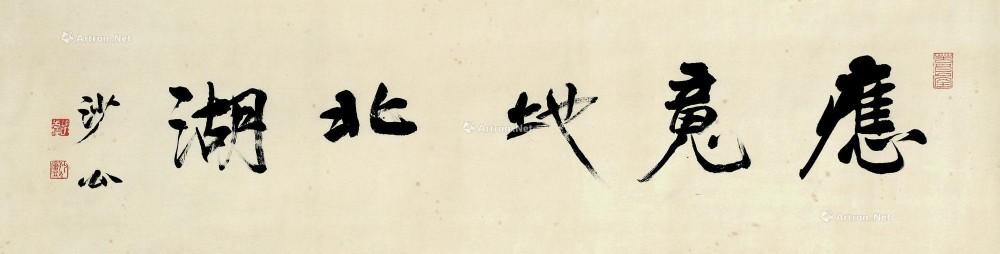 應竟地北湖
沙公
Artron.Net
Artron.Net
Artron.Net